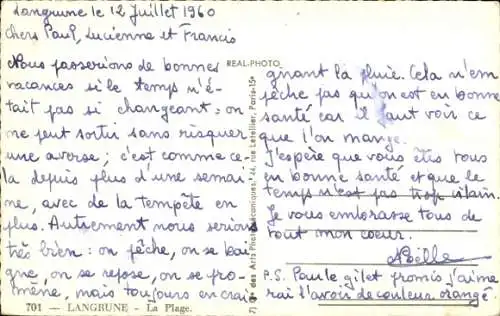 Langrune le 12 Juillet 1960
Chers Paul, Lucienne et Francis
Nous passerions de bonnes
vacances si le temps n'é-
tait pas si changeant : on
ne peut sortir sans risquer
une averse ; c'est comme ce-
la depuis plus d'une semai-
ne, avec de la tempête en
plus. Autrement nous serions
très bien : on pêche, on se bai-
gne, on se repose, on se pro-
mène, mais toujours en crai-
701 — LANGRUNE — La Plage.
REAL-PHOTO
des Arts Photomécaniques, 44, rue Letellier, Paris-15e
gnant la pluie. Cela n'em-
pêche pas qu'on est en bonne
santé car il faut voir ce
que l'on mange.
J'espère que vous êtes tous
en bonne santé et que le
temps n'est pas trop vilain.
Je vous embrasse tous de
tout mon coeur.
Noëlle
P.S. Pau le gilet promis j'aime
rai l'avoir de couleur orangé